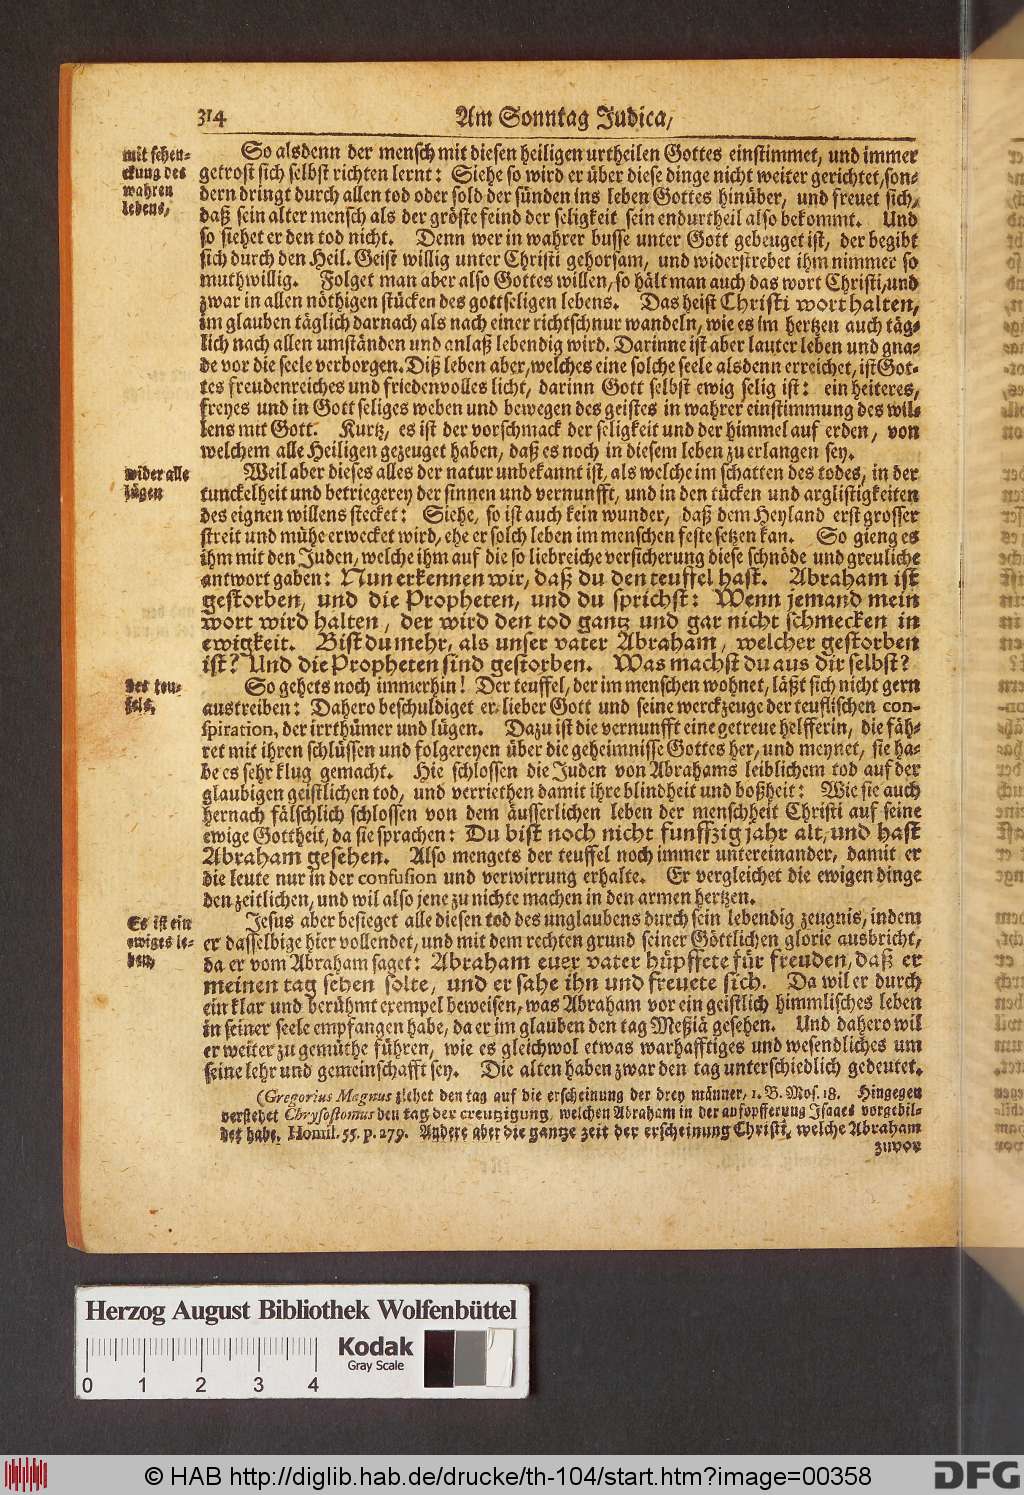 314
Am Sonntag Judica,
mit schen-
ckung des
wahren
lebens,
So alsdenn der mensch mit diesen heiligen urtheilen Gottes einstimmet, und immer
getrost sich selbst richten lernt: Siehe so wird er über diese dinge nicht weiter gerichtet, son-
dern dringt durch allen tod oder sold der sünden ins leben Gottes hinüber, und freuet sich,
daß sein alter mensch als der gröste feind der seligkeit sein endurtheil also bekommt. Und
so siehet er den tod nicht. Denn wer in wahrer busse unter Gott gebeuget ist, der begibt
sich durch den Heil. Geist willig unter Christi gehorsam, und widerstrebet ihm nimmer so
muthwillig. Folget man aber also Gottes willen, so hält man auch das wort Christi, und
zwar in allen nöthigen stücken des gottseligen lebens. Das heist Christi wort halten,
im glauben täglich darnach als nach einer richtschnur wandeln, wie es im hertzen auch täg-
lich nach allen umständen und anlaß lebendig wird. Darinne ist aber lauter leben und gna-
de vor die seele verborgen. Diß leben aber, welches eine solche seele alsdenn erreichet, ist Got-
tes freudenreiches und friedenvolles licht, darinn Gott selbst ewig selig ist: ein heiteres,
freyes und in Gott seliges weben und bewegen des geistes in wahrer einstimmung des wil-
lens mit Gott. Kurtz, es ist der vorschmack der seligkeit und der himmel auf erden, von
welchem alle Heiligen gezeuget haben, daß es noch in diesem leben zu erlangen sey.
wider alle
lügen
Weil aber dieses alles der natur unbekannt ist, als welche im schatten des todes, in der
tunckelheit und betriegerey der sinnen und vernunfft, und in den tücken und arglistigkeiten
des eignen willens stecket: Siehe, so ist auch kein wunder, daß dem Heyland erst grosser
streit und mühe erwecket wird, ehe er solch leben im menschen feste setzen kan. So gieng es
ihm mit den Juden, welche ihm auf die so liebreiche versicherung diese schnöde und greuliche
antwort gaben: Nun erkennen wir, daß du den teuffel hast. Abraham ist
gestorben, und die Propheten, und du sprichst: Wenn jemand mein
wort wird halten, der wird den tod gantz und gar nicht schmecken in
ewigkeit. Bist du mehr, als unser vater Abraham, welcher gestorben
ist? Und die Propheten sind gestorben. Was machst du aus dir selbst?
des teu-
fels,
So gehets noch immerhin! Der teuffel, der im menschen wohnet, läßt sich nicht gern
austreiben: Dahero beschuldiget er lieber Gott und seine werckzeuge der teuflischen con-
spiration, der irrthümer und lügen. Dazu ist die vernunfft eine getreue helfferin, die fäh-
ret mit ihren schlüssen und folgereyen über die geheimnisse Gottes her, und meynet, sie ha-
be es sehr klug gemacht. Hie schlossen die Juden von Abrahams leiblichem tod auf der
glaubigen geistlichen tod, und verriethen damit ihre blindheit und boßheit: Wie sie auch
hernach fälschlich schlossen von dem äusserlichen leben der menschheit Christi auf seine
ewige Gottheit, da sie sprachen: Du bist noch nicht funffzig jahr alt, und hast
Abraham gesehen. Also mengets der teuffel noch immer untereinander, damit er
die leute nur in der confusion und verwirrung erhalte. Er vergleichet die ewigen dinge
den zeitlichen, und wil also jene zu nichte machen in den armen hertzen.
Es ist ein
ewiges le-
ben,
Jesus aber besieget alle diesen tod des unglaubens durch sein lebendig zeugnis, indem
er dasselbige hier vollendet, und mit dem rechten grund seiner Göttlichen glorie ausbricht,
da er vom Abraham saget: Abraham euer vater hüpffete für freuden, daß er
meinen tag sehen solte, und er sahe ihn und freuete sich. Da wil er durch
ein klar und berühmt exempel beweisen, was Abraham vor ein geistlich himmlisches leben
in seiner seele empfangen habe, da er im glauben den tag Meßiä gesehen. Und dahero wil
er weiter zu gemüthe führen, wie es gleichwol etwas warhafftiges und wesendliches um
seine lehr und gemeinschafft sey. Die alten haben zwar den tag unterschiedlich gedeutet.
(Gregorius Magnus ziehet den tag auf die erscheinung der drey männer, 1. B. Mos. 18. Hingegen
verstehet Chrysostomus den tag der creutzigung, welchen Abraham in der aufopfferung Isaacs vorgebil-
det habe, Homil. 55. p. 279. Andere aber die gantze zeit der erscheinung Christi, welche Abraham
zuvor
Herzog August Bibliothek Wolfenbüttel
Kodak
Gray Scale
0 1 2 3 4
© HAB http://diglib.hab.de/drucke/th-104/start.htm?image=00358
DFG